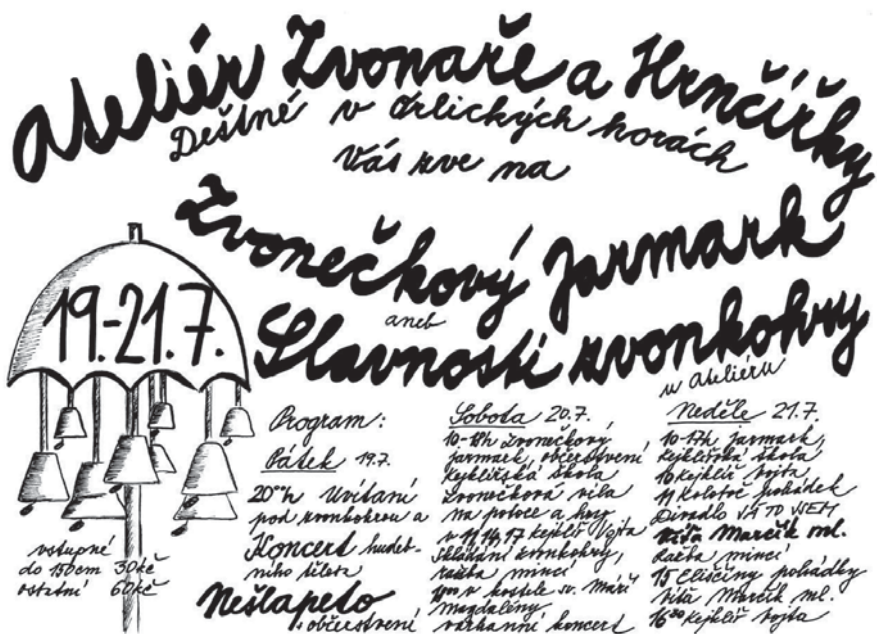 Ateliér Zvonaře a Hrnčířky
Deštné v Orlických horách
Vás zve na
Zvonečkový Jarmark
aneb
Slavnosti zvonkohry
u Ateliéru
19.-21.7.
vstupné
do 150cm 30kč
ostatní 60kč
Program:
Pátek 19.7.
20ºº h Uvítání
pod zvonkohrou a
Koncert hudeb-
ního tělesa
Nešlapeto
občerstvení
Sobota 20.7.
10-18h Zvonečkový
jarmark, občerstvení
Kejklířská škola
Zvonečková víla
na potoce a hry
v 11,14,17 Kejklíř Vojta
skládání zvonkohry,
ražba mincí
v kostele sv. Máří
Magdalény
varhanní koncert
Neděle 21.7.
10-17h jarmark,
Kejklířská škola
10 Kejklíř Vojta
11 Kolotoč pohádek
Divadlo JÁ TO VŠEM
Víťa Marčík ml.
Ražba mincí
15 Eliščiny pohádky
Víťa Marčík ml.
16³⁰ Kejklíř Vojta